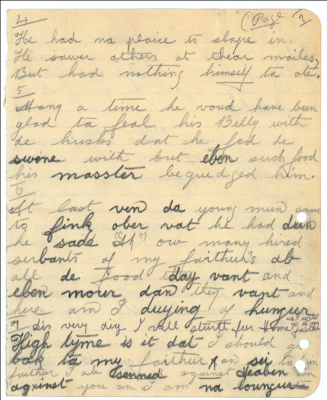 4 (Page 3
He had no plaise to slape in.
He sawer others at thear mailes
But had nothing himself to ate.
5
Mony a time he voud have been
glad to feal his Belly with
de husks dat he fed de
swone with but eben such food
his masster begudged him.
6
At last ven da young mun came
to fink ober vat he had dun
he sads "H" ow many hired
serbants of my faithur's ab
all de food tday vant and
eben mourr dan they vant and
here am I duying of hunger
7 dis very day I vill sturt for home
High tyme is it dat I should go
bak to my faithur & an sei to him
faithur I ab senned against Heaben an
against you an I am na loungur